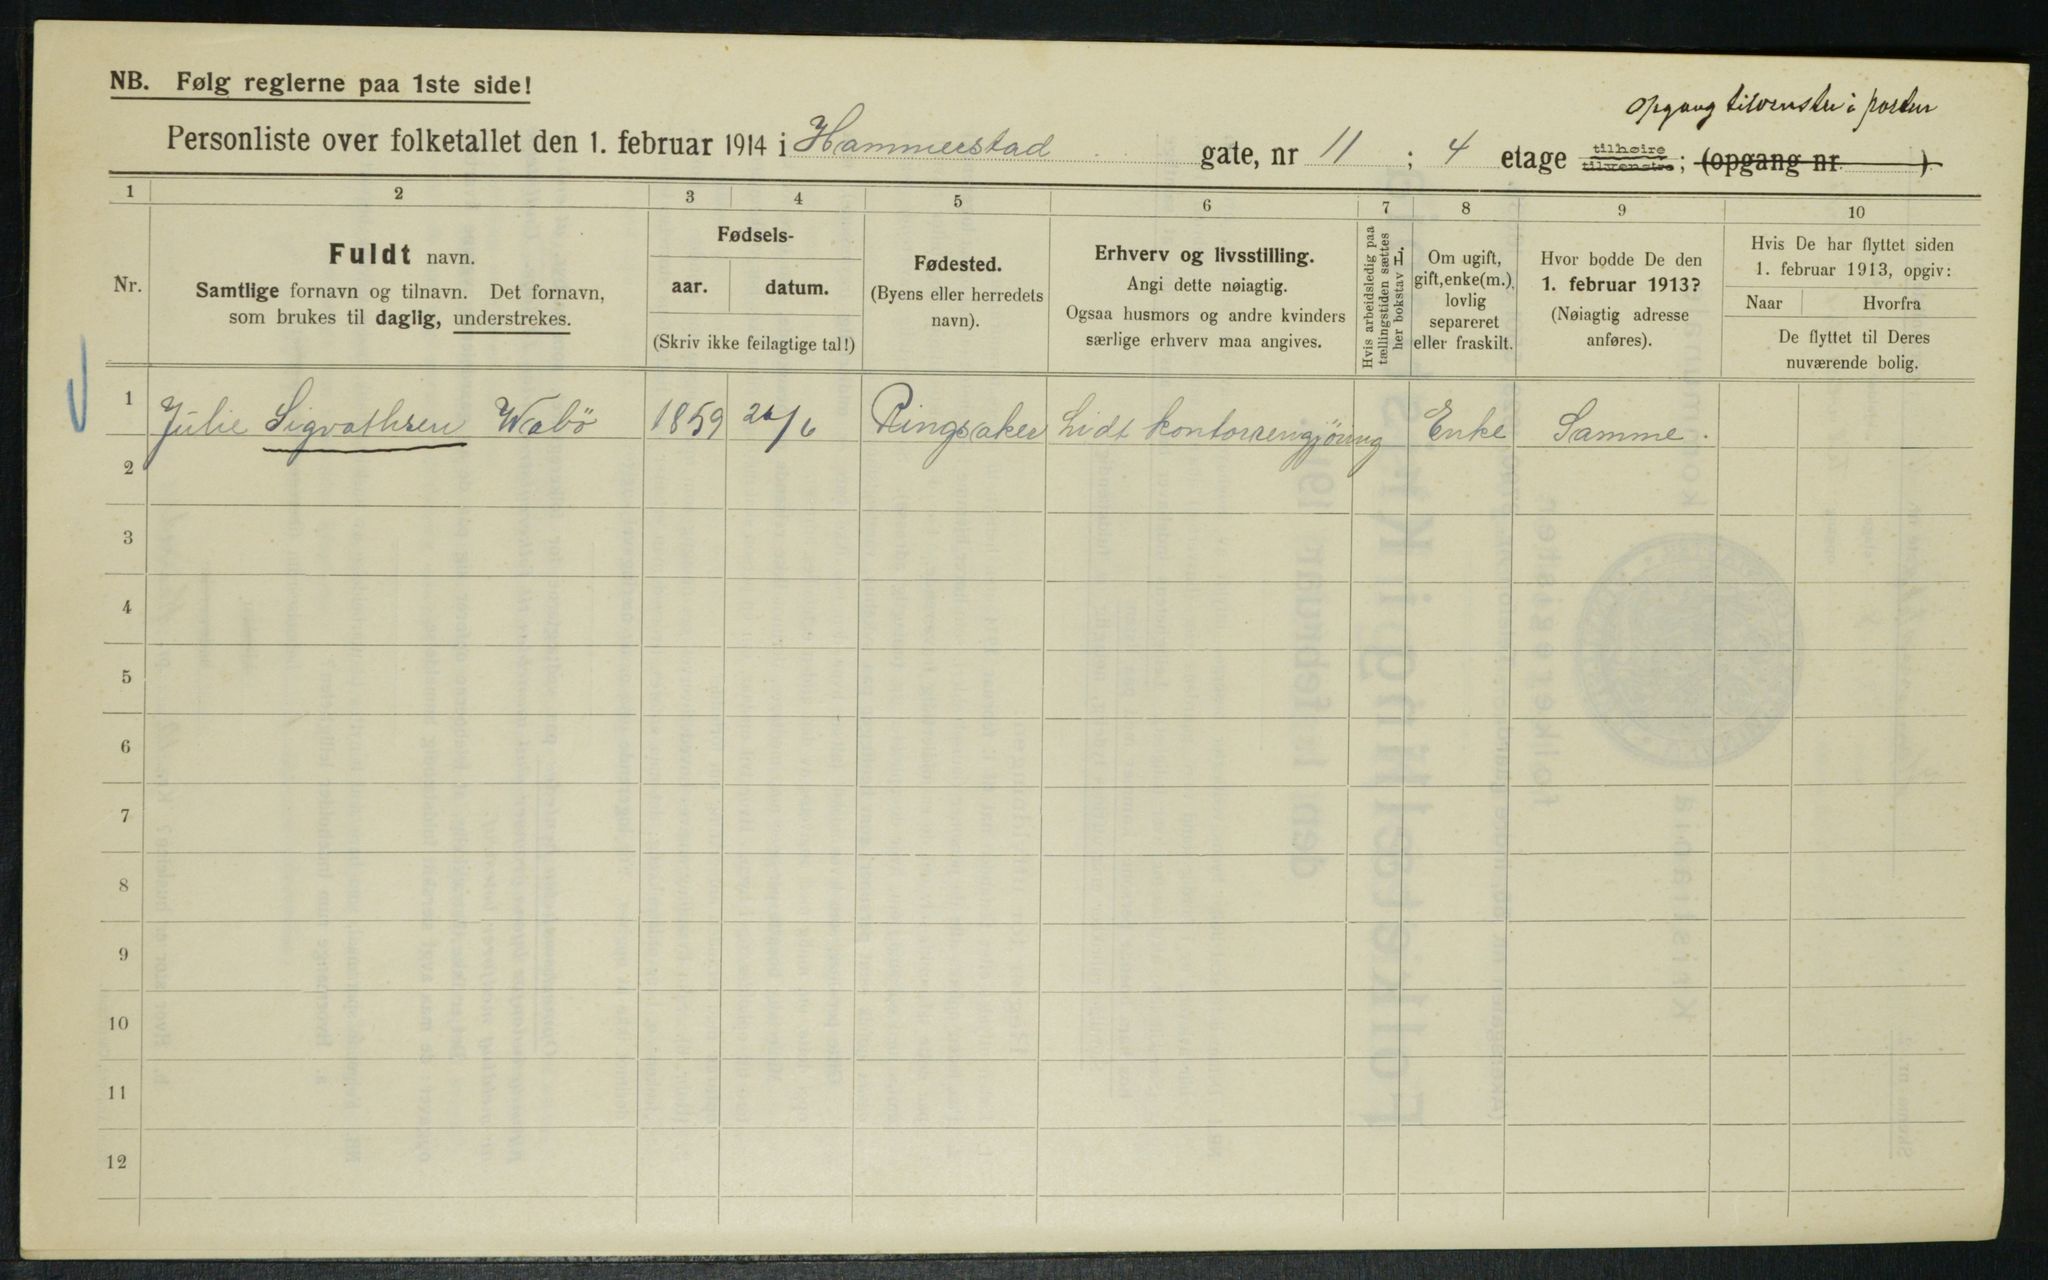 NB. Følg reglerne paa 1ste side!
opgang tilvenstre i porten
Personliste over folketallet den 1. februar 1914 i Hammerstad gate, nr 11 ; 4 etage tilhøire tilvenstre ; (opgang nr )
1 2 3 4 5 6 7 8 9 10
Nr.
Fuldt navn.
Samtlige fornavn og tilnavn. Det fornavn,
som brukes til daglig, understrekes.
Fødsels-
aar. datum.
(Skriv ikke feilagtige tal!)
Fødested.
(Byens eller herredets
navn).
Erhverv og livsstilling.
Angi dette nøiagtig.
Ogsaa husmors og andre kvinders
særlige erhverv maa angives.
Hvis arbeidsledig paa
tællingstiden sættes
her bokstav L.
Om ugift,
gift, enke(m.),
lovlig
separeret
eller fraskilt.
Hvor bodde De den
1. februar 1913?
(Nøiagtig adresse
anføres).
Hvis De har flyttet siden
1. februar 1913, opgiv:
Naar Hvorfra
De flyttet til Deres
nuværende bolig.
1 Julie Sigvathsen Wabö 1859 26/6 Ringsaker Lidt kontorrengjöring Enke Samme.
2
3
4
5
6
7
8
9
10
11
12